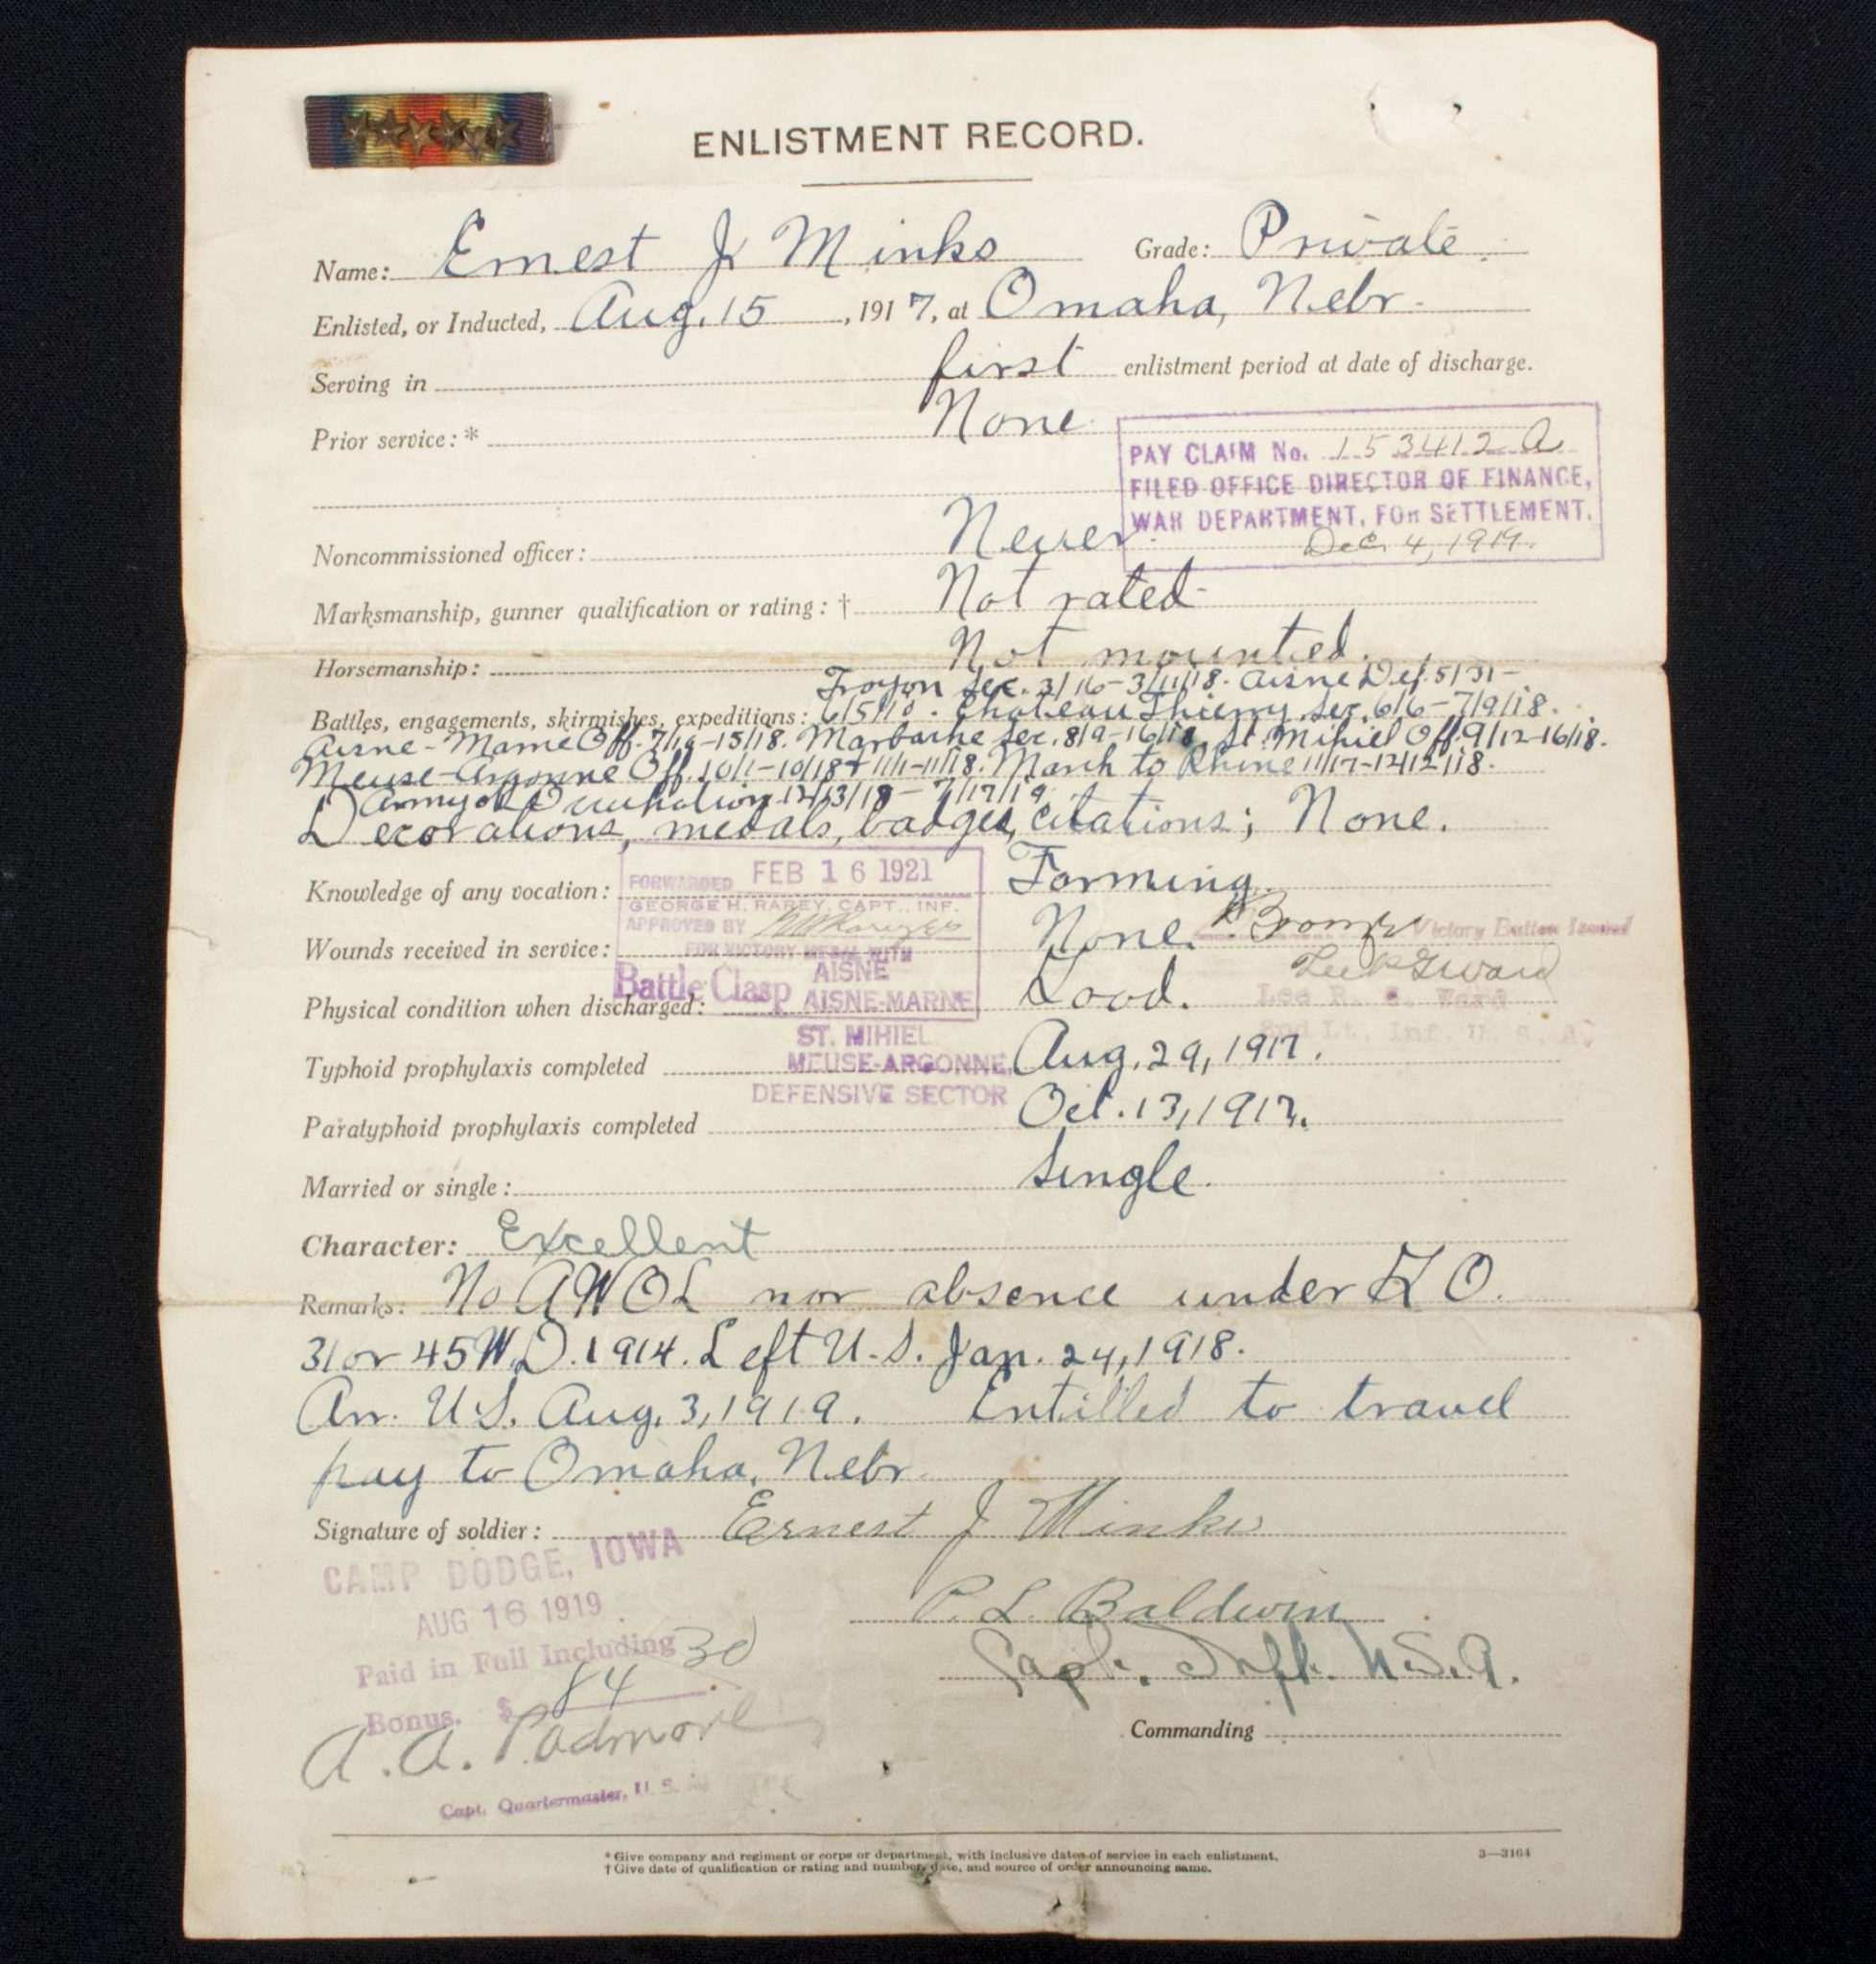 ENLISTMENT RECORD.
Name: Ernest J. Minks Grade: Private.
Enlisted, or Inducted, Aug. 15, 1917, at Omaha, Nebr.
Serving in first enlistment period at date of discharge.
Prior service: * None
PAY CLAIM No. 153412 A
FILED OFFICE DIRECTOR OF FINANCE,
WAR DEPARTMENT, FOR SETTLEMENT.
Dec. 4, 1919.
Noncommissioned officer: Never.
Marksmanship, gunner qualification or rating: † Not rated
Horsemanship: Not mounted.
Troyon Sec. 3/16-3/11/18. Aisne Def. 5/31-
Battles, engagements, skirmishes, expeditions: 6/5/18. Chateau Thierry Sec. 6/6-7/9/18.
Aisne-Marne Off. 7/18-15/18. Marbache Sec. 8/9-16/18. St. Mihiel Off. 9/12-16/18.
Meuse-Argonne Off. 10/1-10/18 + 11/1-11/18. March to Rhine 11/17-12/12/18.
Army of Occupation 12/13/18 - 7/17/19.
Decorations, medals, badges, citations; None.
Knowledge of any vocation: Farming.
FORWARDED FEB 16 1921
GEORGE H. RAREY, CAPT., INF.
APPROVED BY
FOR VICTORY MEDAL WITH
Battle Clasp AISNE
AISNE-MARNE
ST. MIHIEL
MEUSE-ARGONNE,
DEFENSIVE SECTOR
Wounds received in service: None. Bronze Victory Button Issued
Physical condition when discharged: Good.
Lee R. G. Ward
2nd Lt. Inf. U. S. A.
Typhoid prophylaxis completed Aug. 29, 1917.
Paratyphoid prophylaxis completed Oct. 13, 1917.
Married or single: Single.
Character: Excellent
Remarks: No AWOL nor absence under G O.
31 or 45 W.D. 1914. Left U.S. Jan. 24, 1918.
Arr. U.S. Aug. 3, 1919. Entitled to travel
pay to Omaha, Nebr.
Signature of soldier: Ernest J Minks
CAMP DODGE, IOWA
AUG 16 1919
Paid in Full Including
Bonus. $ 84 30
A. A. Padmore
Capt. Quartermaster, U. S.
P. L. Baldwin
Capt. Inft. U.S.A.
Commanding
* Give company and regiment or corps or department, with inclusive dates of service in each enlistment.
† Give date of qualification or rating and number, date, and source of order announcing same.
3—3164